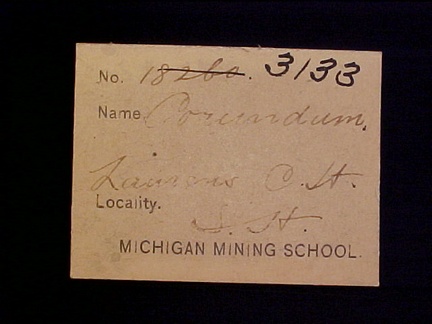 No. 18260. 3133
Name Corundum.
Laurens C. H.
Locality.
S. H.
MICHIGAN MINING SCHOOL.